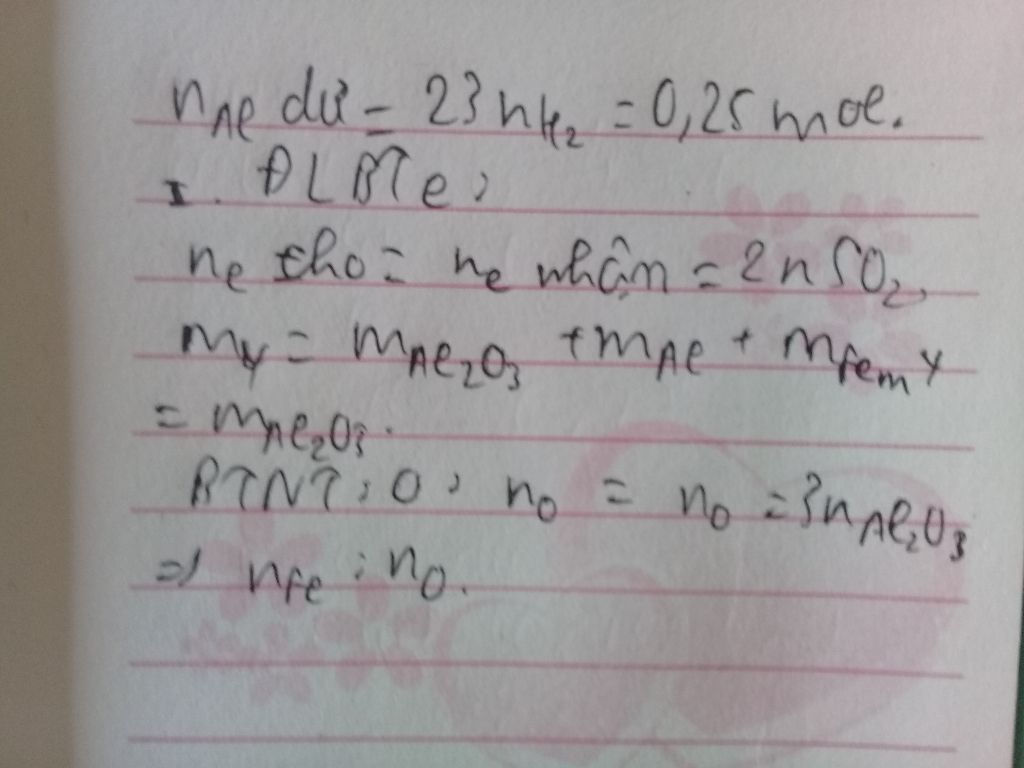 nAl dư = 23 nH₂ = 0,25 mol.
I. ĐLBTe:
ne cho = ne nhận = 2nSO₂,
mY = mAl₂O₃ + mAl + mFe mY
= mAl₂O₃.
BTNT: O: nO = nO = 3nAl₂O₃
=> nFe : nO.